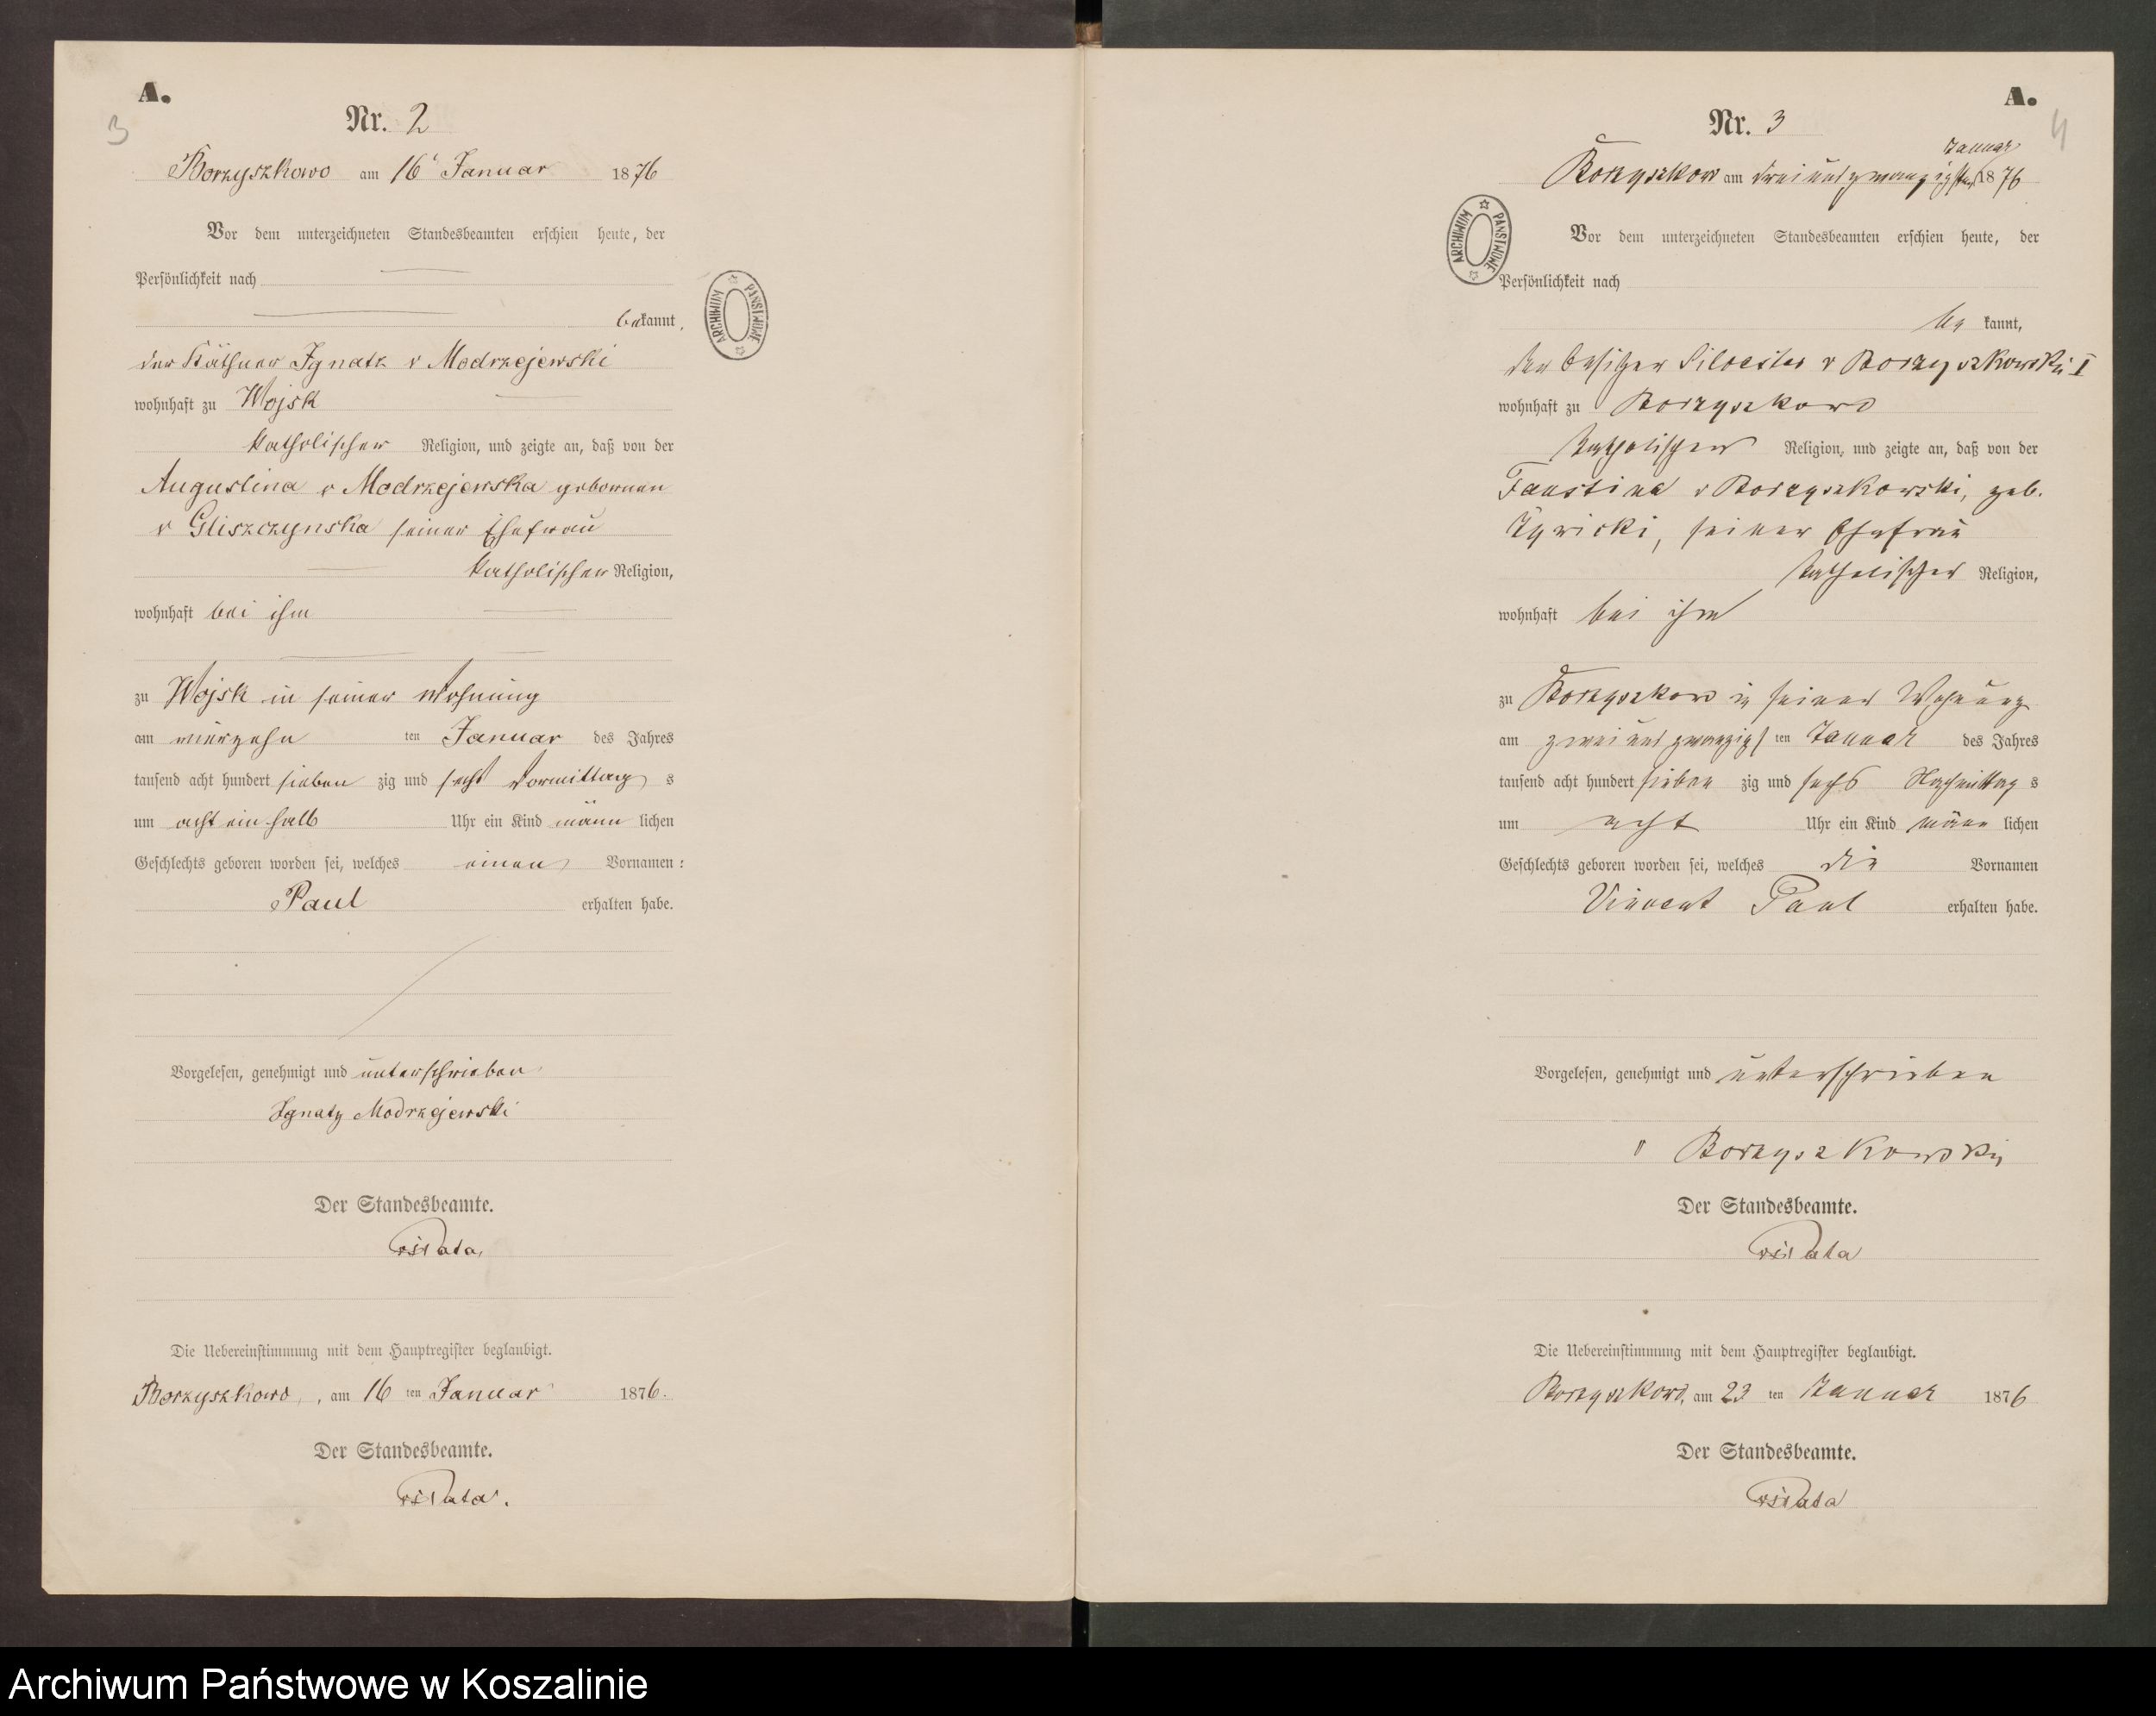 A.
3
Nr. 2
Borzyszkowo am 16 Januar 1876
Vor dem unterzeichneten Standesbeamten erschien heute, der
Persönlichkeit nach
bekannt,
der Käthner Ignatz v Modrzejewski
wohnhaft zu Wojsk
katholischer Religion, und zeigte an, daß von der
Augustina v Modrzejewska gebornen
v Gliszczynska seiner Ehefrau
katholischer Religion,
wohnhaft bei ihm
zu Wojsk in seiner Wohnung
am vierzehn ten Januar des Jahres
tausend acht hundert sieben zig und sechs Vormittag s
um acht ein halb Uhr ein Kind männ lichen
Geschlechts geboren worden sei, welches einen Vornamen:
Paul erhalten habe.
Vorgelesen, genehmigt und unterschrieben
Ignatz Modrzejewski
Der Standesbeamte.
Die Uebereinstimmung mit dem Hauptregister beglaubigt.
Borzyszkowo, am 16 ten Januar 1876.
Der Standesbeamte.
ARCHIWUM PAŃSTWOWE
A.
4
Nr. 3
Januar
Borzyszkowo am dreiundzwanzigsten 1876
Vor dem unterzeichneten Standesbeamten erschien heute, der
Persönlichkeit nach
be kannt,
der Besitzer Silvester v Borzyszkowski I
wohnhaft zu Borzyszkowo
katholischer Religion, und zeigte an, daß von der
Faustina v Borzyszkowski, geb.
Zywicki, seiner Ehefrau
katholischer Religion,
wohnhaft bei ihm
zu Borzyszkowo in seiner Wohnung
am zweiundzwanzigs ten Januar des Jahres
tausend acht hundert sieben zig und sechs Nachmittag s
um acht Uhr ein Kind männ lichen
Geschlechts geboren worden sei, welches die Vornamen
Vincent Paul erhalten habe.
Vorgelesen, genehmigt und unterschrieben
v Borzyszkowski
Der Standesbeamte.
Die Uebereinstimmung mit dem Hauptregister beglaubigt.
Borzyszkowo, am 23 ten Januar 1876
Der Standesbeamte.
ARCHIWUM PAŃSTWOWE
Archiwum Państwowe w Koszalinie